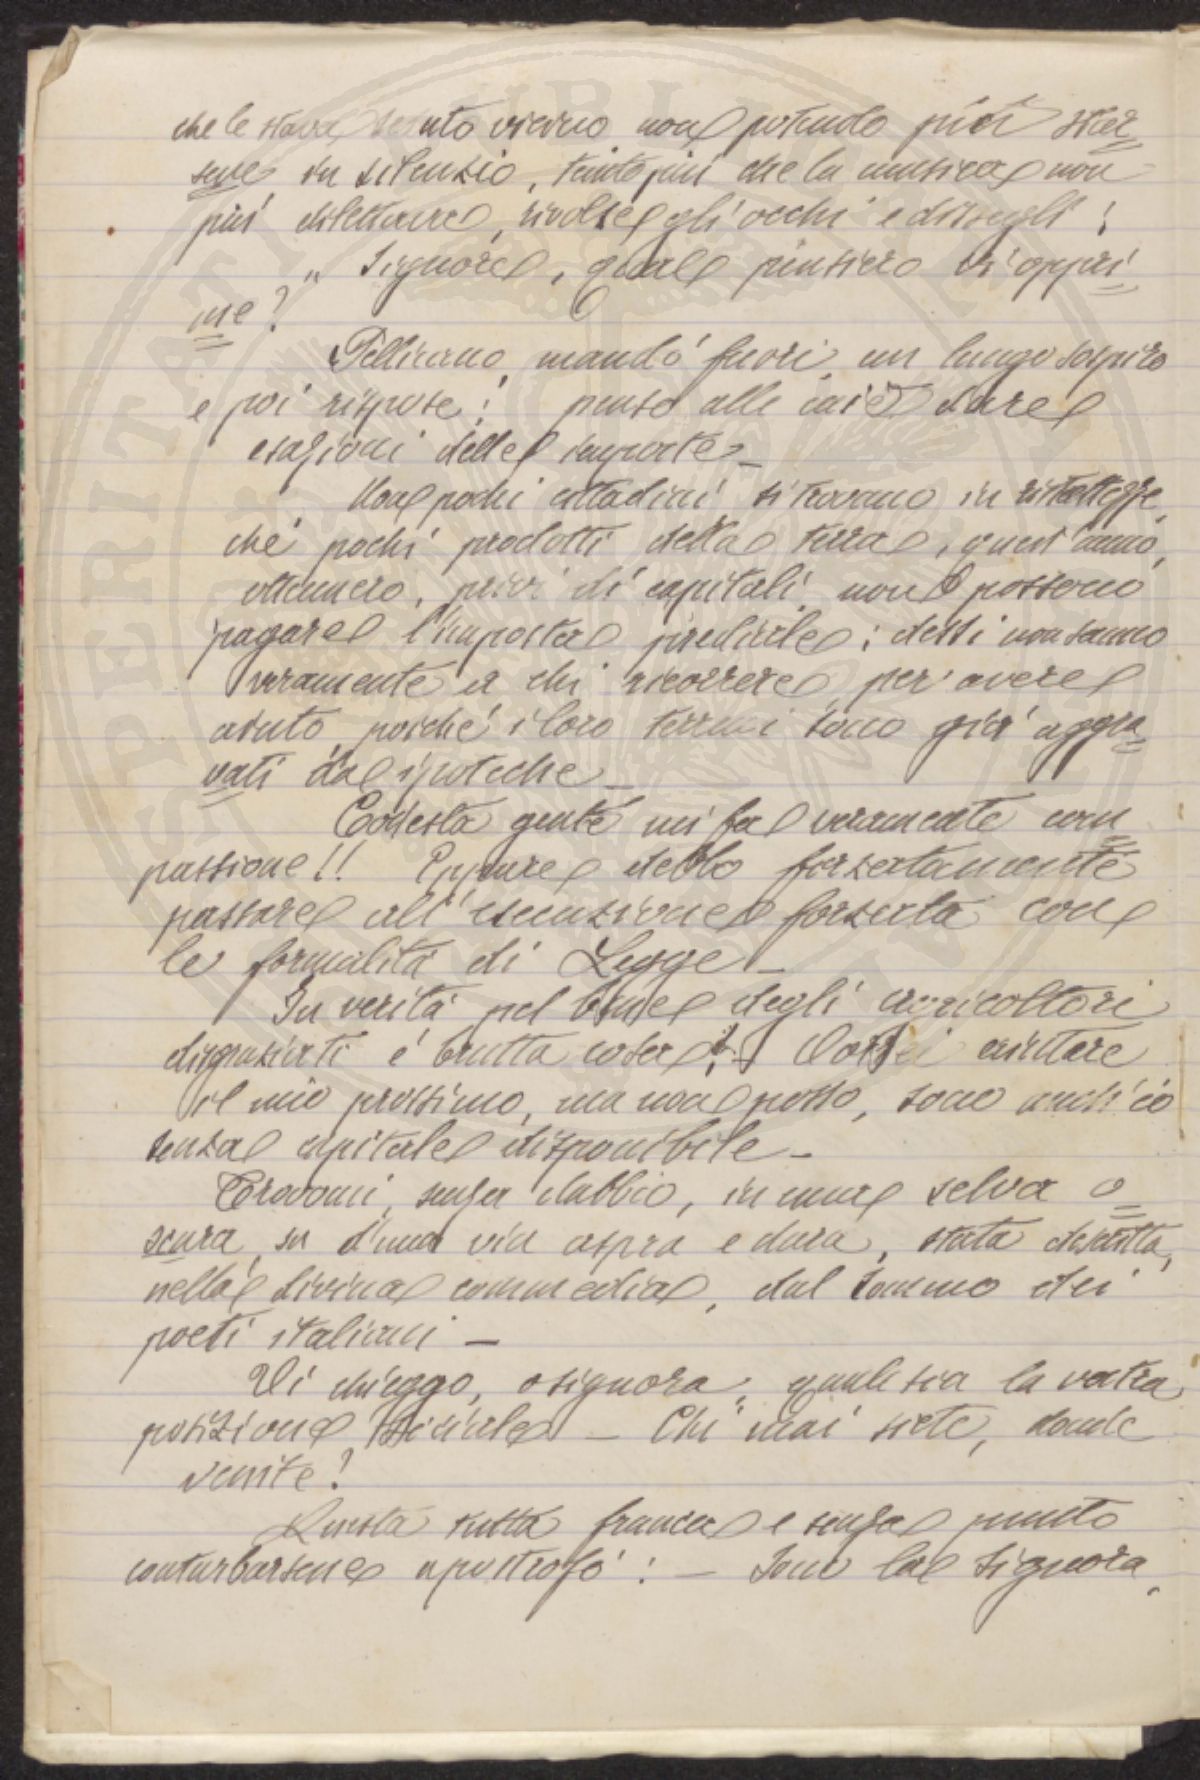 che le stava seduto vicino non potendo più star
sene in silenzio, tanto più che la musica non
più dilettava, rivolse gli occhi e dissegli:
" Signore, quale pensiero vi oppri
me?
Pellicano, mandò fuori un lungo sospiro
e poi rispose: penso alle così dure
esazioni delle imposte _
Non pochi cittadini si trovano in ristrettezze,
chè pochi prodotti della terra, quest'anno,
ottennero, privi di capitali, non possono
pagare l'imposta prediale; dessi non sanno
veramente a chi ricorrere per avere
aiuto, poichè i loro terreni sono già aggra
vati da ipoteche _
Codesta gente mi fa veramente com
passione!! Eppure debbo forzatamente
passare all'esecuzione forzata con
le formalità di Legge _
In verità pel bene degli agricoltori
disgraziati è brutta cosa! Vorrei aiutare
il mio prossimo, ma non posso, sono anch'io
senza capitale disponibile _
Trovomi, senza dubbio, in una selva o
scura, su d'una via aspra e dura, stata descritta,
nella divina commedia, dal sommo dei
poeti italiani _
Vi chieggo, o signora, quale sia la vostra
posizione sociale _ Chi mai siete, donde
venite?
Questa tutta franca e senza punto
conturbarsene apostrofò: _ Sono la Signora,